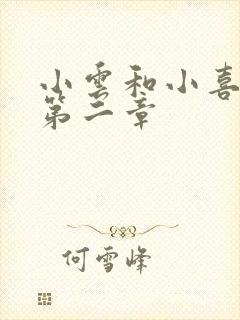 小雲和小喜
第二章
何雪峰